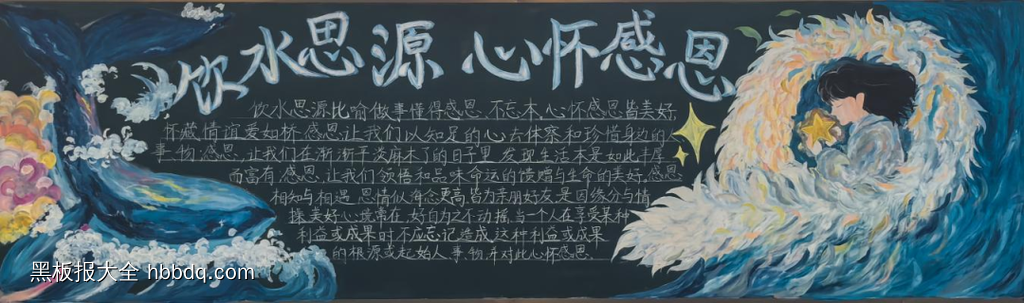 饮水思源 心怀感恩
饮水思源比喻做事懂得感恩、不忘本,心怀感恩皆美好,
怀藏情谊爱如桥.感恩让我们以知足的心去体察和珍惜身边的人
事、物;感恩,让我们在渐渐平淡麻木了的日子里,发现生活本是如此丰厚
而富有,感恩,让我们领悟和品味命运的馈赠与生命的美好.感恩
相知与相遇,恩情似海念更高,皆为亲朋好友,是因缘分与情
操,美好心境常在,好自为之不动摇.当一个人在享受某种
利益或成果时不应忘记造成这种利益或成果
的根源或起始人、事、物,并对此心怀感恩.
黑板报大全 hbbdq.com